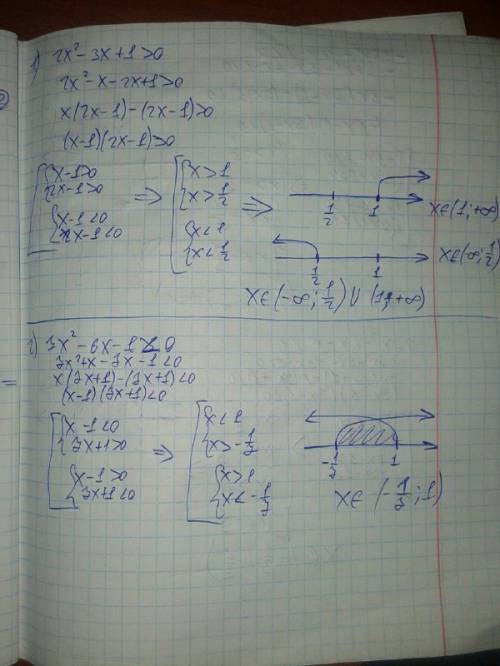 1) 2x² - 3x + 1 > 0
2x² - x - 2x + 1 > 0
x(2x-1) - (2x-1) > 0
(x-1)(2x-1) > 0
x-1>0
2x-1>0
x-1<0
2x-1<0
⇒
x>1
x>1/2
x<1
x<1/2
⇒
1/2 1 x∈(1;+∞)
1/2 1 x∈(-∞;1/2)
x∈(-∞;1/2) ∪ (1;+∞)
2) 7x² - 6x - 1 < 0
7x² + x - 7x - 1 < 0
x(7x+1) - (7x+1) < 0
(x-1)(7x+1) < 0
x-1<0
7x+1>0
x-1>0
7x+1<0
⇒
x<1
x>-1/7
x>1
x<-1/7
-1/7 1
x∈(-1/7;1)